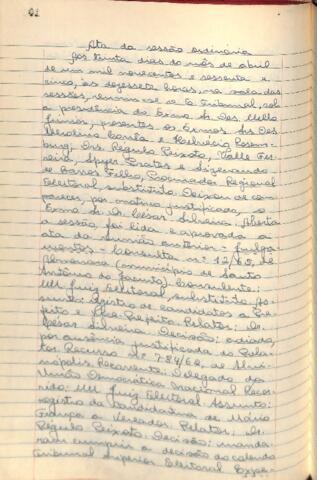 Ata da sessão ordinária
Aos trinta dias do mês de abril
de um mil novecentos e sessenta e
cinco, às dezessete horas, na sala das
sessões, reuniu-se o Tribunal, sob
a presidência do Exmo Sr. Des. Mello
presentes os Exmos Srs. Des.
Costa e
Drs. Régulo Peixoto, Valle Fer-
reira, Prates e
de Barros Filho, Procurador Regional
Eleitoral, substituto. Deixou de com-
parecer, por motivo justificado, o
Exmo Sr. Dr. César Silveira. Aberta
a sessão, foi lida e aprovada a
ata da reunião anterior - Julga-
mentos - Consulta nº 12/65, de
Almenara (município de Santo
Antônio do Jacinto). Consulente:
MM. Juiz Eleitoral, substituto. As-
sunto: registro de candidatos a Pre-
feito e Vice-Prefeito. Relator: Dr.
César Silveira. Decisão: adiada,
por ausência justificada do Rela-
tor. Recurso nº 784/62, de
Recorrente: Delegado da
União Democrática Nacional. Recor-
rido: MM. Juiz Eleitoral. Assunto:
registro da candidatura de Mário
França a Vereador. Relator: Dr.
Régulo Peixoto. Decisão: manda-
ram cumprir a decisão do colendo
Tribunal Superior Eleitoral.